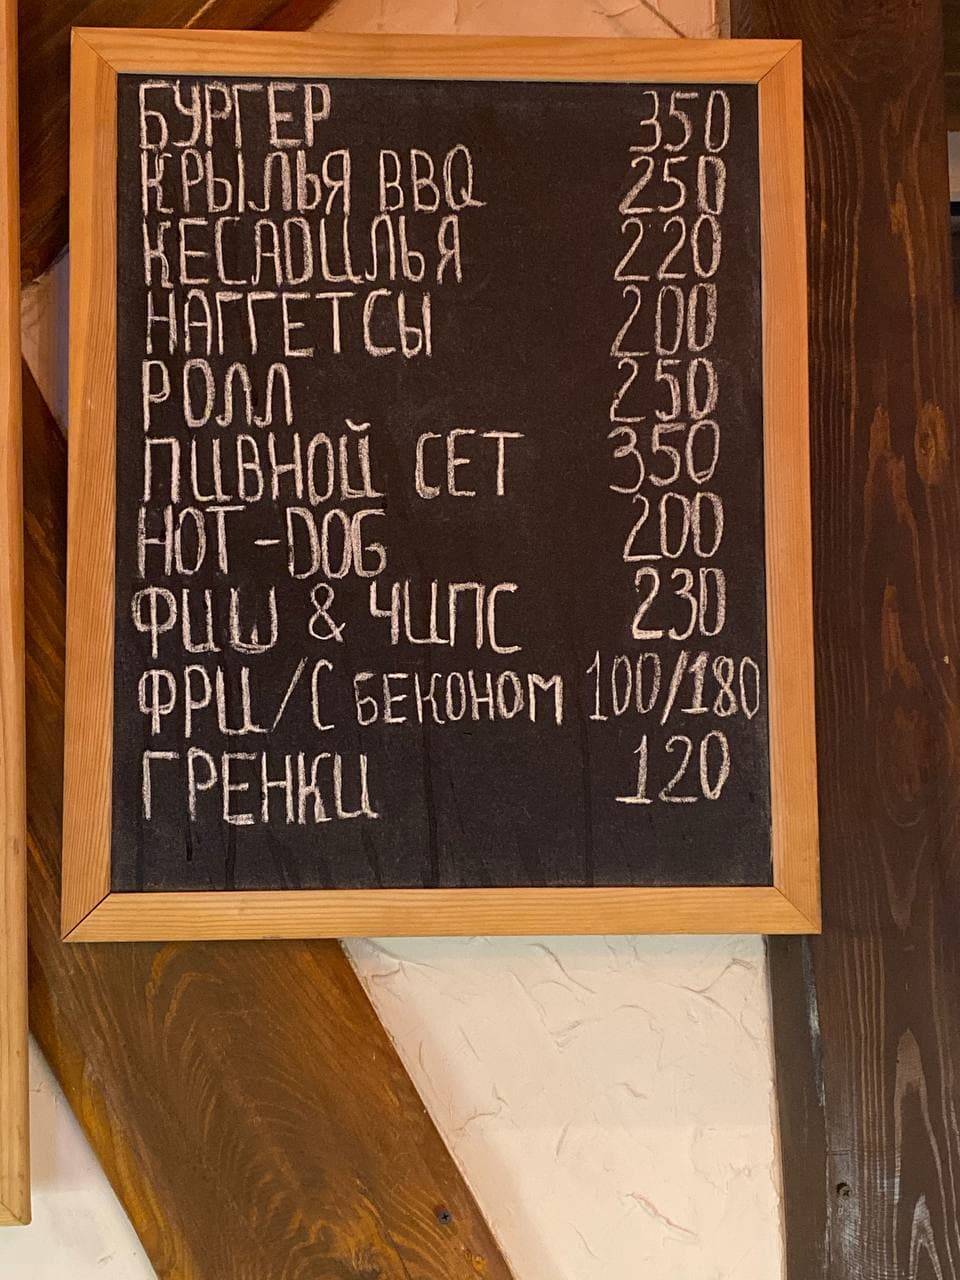 БУРГЕР 350
КРЫЛЬЯ BBQ 250
КЕСАДИЛЬЯ 220
НАГГЕТСЫ 200
РОЛЛ 250
ПИВНОЙ СЕТ 350
HOT-DOG 200
ФИШ & ЧИПС 230
ФРИ/С БЕКОНОМ 100/180
ГРЕНКИ 120